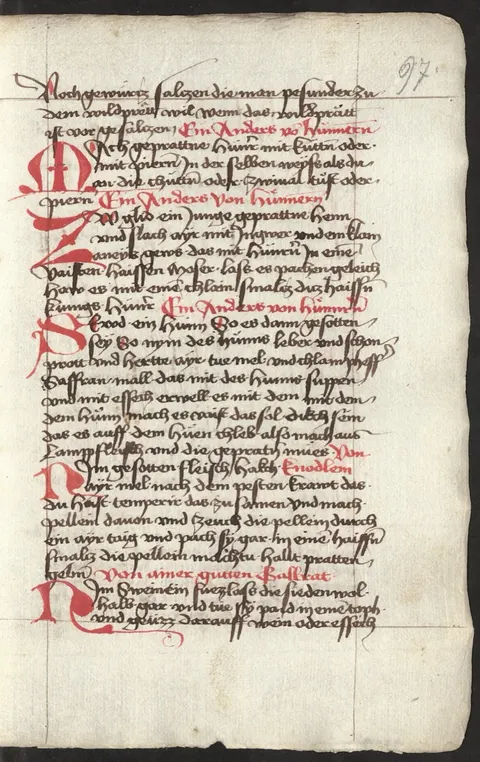 97
Noch gewürtz saltzen die man pesunder zu
dem wildprätt wil wenn das wildprätt
ist vor gesaltzen Ein Anders võ hünnern
Ach geprattne hünr mit kuttn oder
mit piern In der selben weyß als du
an die oder zwival tust oder
piern Ein Anders von hünnern
Zw glid ein Junge geprattne henn
vnd slach ayr mit Ingwer vnd ein klain
waneys gews das mit hünrn In eine
vaisten haissen moser laß es pachen geleich
haw es mit eine chlain smaltz duz haissn
kunigs hünr Ein Anders von hünnern
Sewd ein hünn So es dann gesotten
sey So nym des hünns leber vnd schon
prott vnd hertte ayr tue mel vnd chlain pheff
Saffran mall das mit des hünns suppen
vnd mit essich erwell es mit dem mit dem
dem hünn mach es das sol dikch sein
das es auff dem hüen chleb also mach aus
Lampfleisch vnd die geprattn Von
Im gesoten fleisch hakch knodlein
ayr mel nach dem pesten krawt das
du hast temperir das zusamen vnd mach
pellein dauon vnd zeuch die pellein durch
ein ayr taig vnd pach sy gar in eine haissn
smaltz die pellein machtu halt pratten
gelbn Von ainer gutten Sallrat
Nim Sweinein fuezz laß die sieden wol
halb gar vnd tue sy pald in eine toph
vnd geuzz darauff wein oder essich